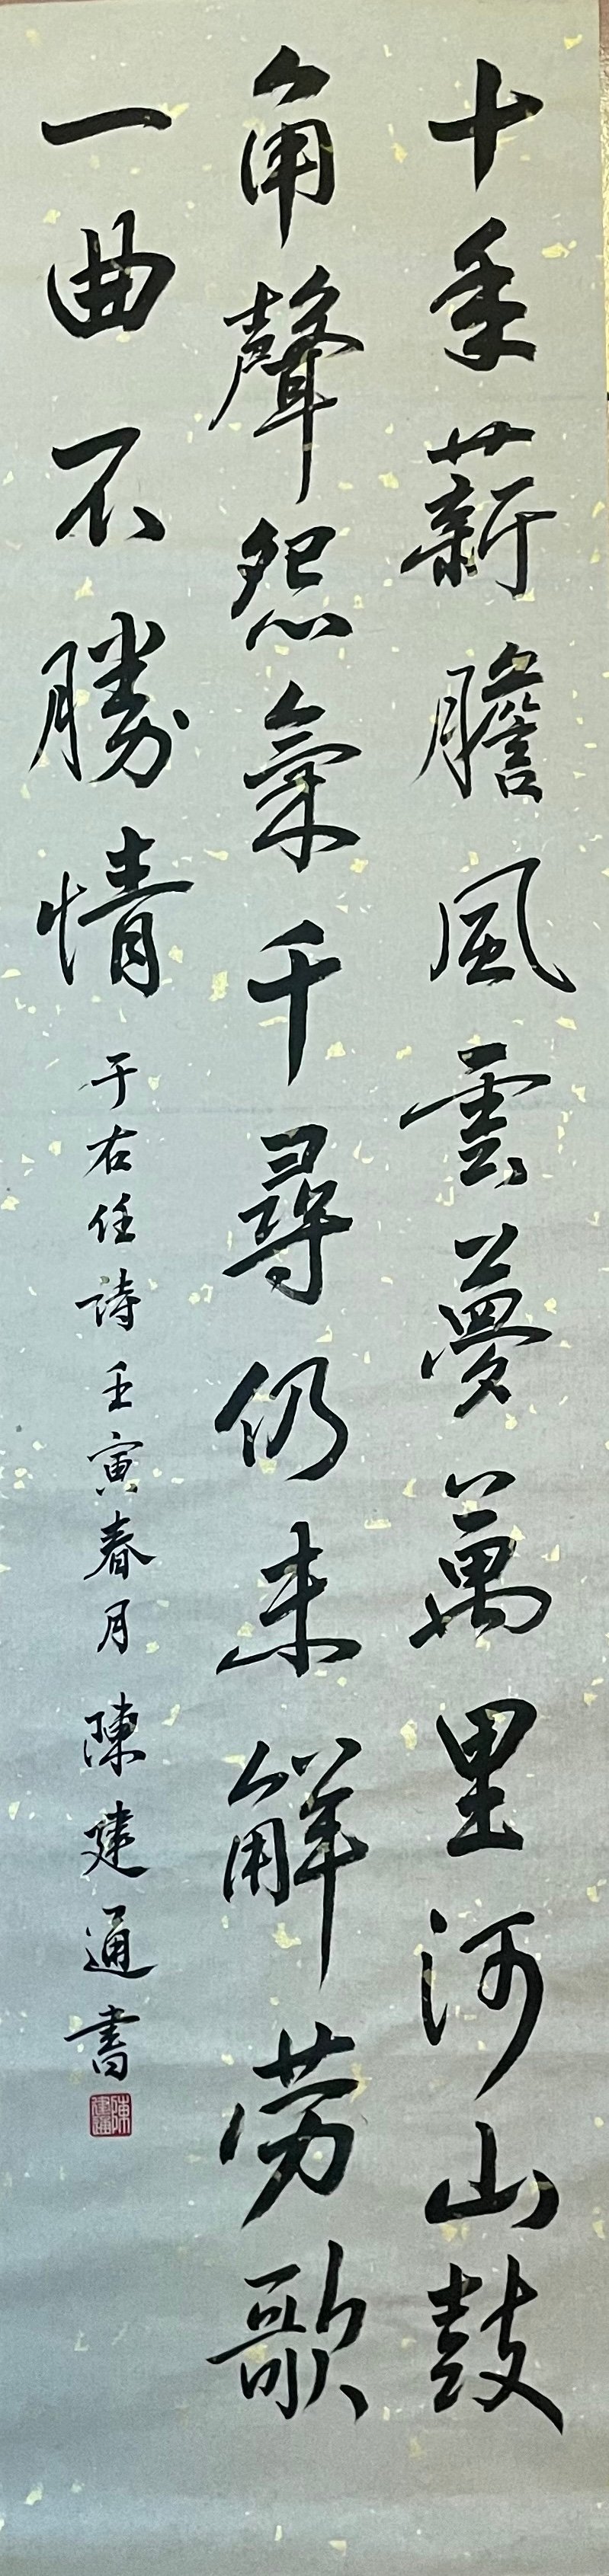 十年薪膽風雲夢萬里河山鼓
角聲怨氣千尋仍未解勞歌
一曲不勝情
于右任詩壬寅春月陳建通書
陳建通